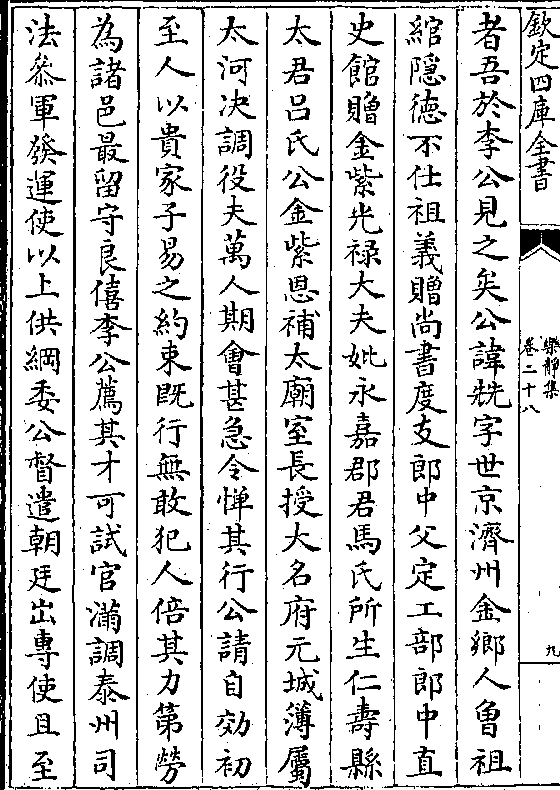 欽定四庫全書
樂靜集
卷二十八
九
者吾於李公見之矣公諱兟字世京濟州金鄉人曾祖
綰隱德不仕祖義贈尚書度支郎中父定工部郎中直
史館贈金紫光禄大夫妣永嘉郡君馬氏所生仁壽縣
太君吕氏公金紫恩補太廟室長授大名府元城簿屬
大河决調役夫萬人期㑹甚急令憚其行公請自効初
至人以貴家子易之約束既行無敢犯人倍其力第勞
為諸邑最留守良僖李公薦其才可試官滿調泰州司
法叅軍發運使以上供綱委公督遣朝廷出專使且至